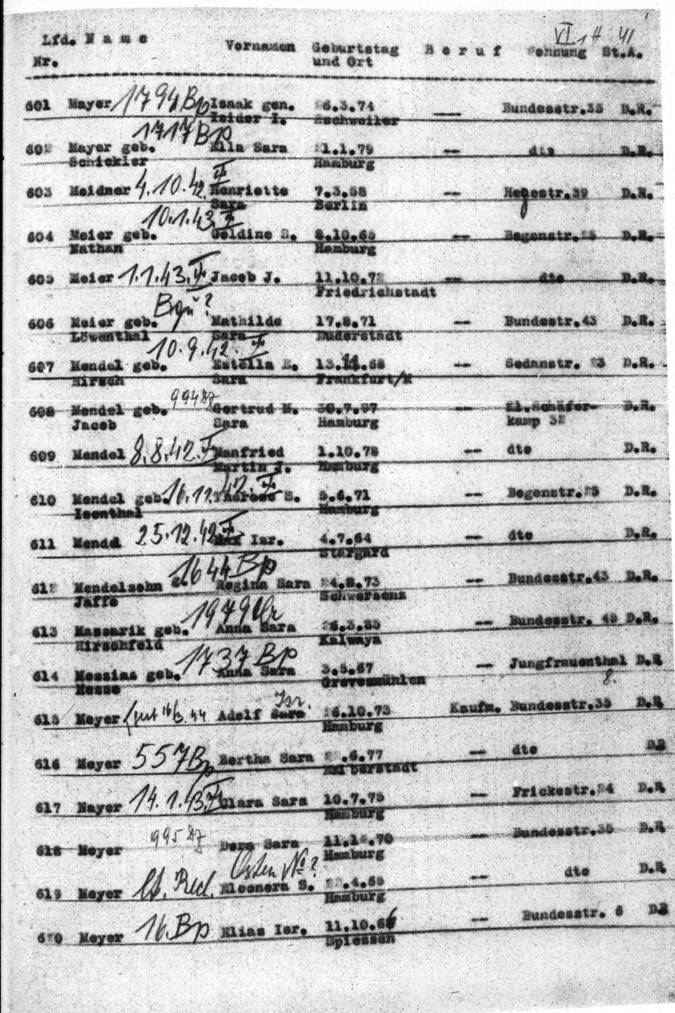 VI 1 H 41
Lfd. Name Vornamen Geburtstag Beruf Wohnung St.A.
Nr. und Ort
601 Mayer 1794 Bp Isaak gen. 26.3.74 — Bundesstr.35 D.R.
Isidor I. Eschweiler
1717 Bp
602 Mayer geb. Ella Sara 21.1.79 -- dto D.R.
Schickler Hamburg
603 Meidner 4.10.42 Henriette 7.3.58 -- Hegestr.39 D.R.
Sara Berlin
10.1.43
604 Meier geb. Goldine S. 8.10.65 -- Bogenstr.25 D.R.
Nathan Hamburg
605 Meier 1.1.43. Jacob J. 11.10.72 -- dto D.R.
Friedrichstadt
606 Meier geb. Mathilde 17.8.71 -- Bundestr.43 D.R.
Löwenthal Sara Duderstadt
10.9.42.
607 Mendel geb. Estella E. 13.11.68 -- Sedanstr. 23 D.R.
Hirsch Sara Frankfurt/M
608 Mendel geb. Gertrud M. 30.7.07 -- Kl.Schäfer- D.R.
Jacob Sara Hamburg kamp 32
609 Mendel 8.8.42. Manfried 1.10.78 -- dto D.R.
Martin J. Hamburg
610 Mendel geb. 16.12.42 Therese S. 5.6.71 -- Bogenstr.25 D.R.
Isenthal Hamburg
611 Mendel 25.12.42 Max Isr. 4.7.64 -- dto D.R.
Stargard
1644 Bp
612 Mendelsohn Regina Sara 24.8.73 -- Bundesstr.43 D.R.
Jaffe Schwersenz
1979
613 Massarik geb. Anna Sara 26.3.85 -- Bundesstr. 43 D.R.
Hirschfeld Kalwaya
1737 Bp
614 Messias geb. Anna Sara 3.5.67 -- Jungfrauenthal D.R
Hesse Grevesmühlen 8.
Isr.
615 Meyer Adolf Sara 26.10.73 Kaufm. Bundesstr.35 D.R
Hamburg
616 Meyer 557 Bp Bertha Sara .6.77 -- dto DR
Halberstadt
617 Nayer 14.1.43. Clara Sara 10.7.75 -- Frickestr.24 D.R
Hamburg
618 Meyer Dora Sara 11.12.70 -- Bundesstr.35 D.R
Hamburg
619 Meyer Eleonora S. .4.65 -- dto D.R
Hamburg
620 Meyer 16. Bp Elias Isr. 11.10.66 -- Bundesstr. 6 DR